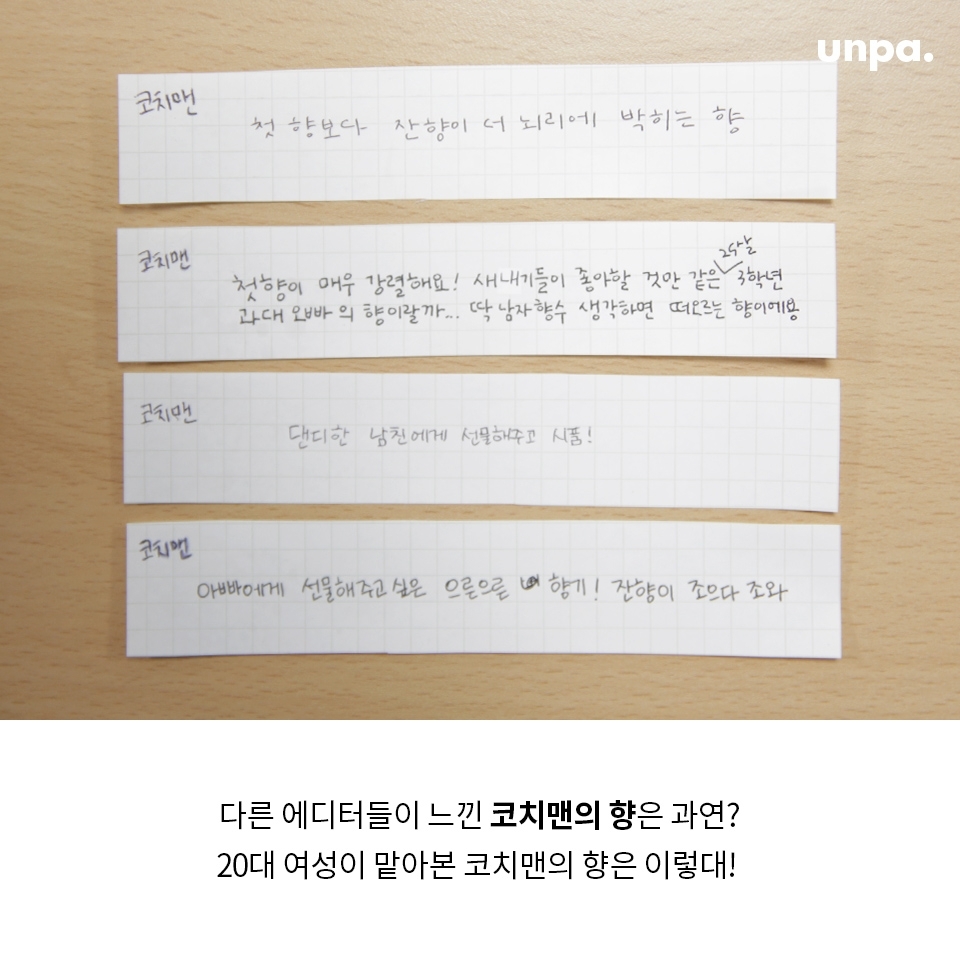 unpa.
코치맨
첫 향보다 잔향이 더 뇌리에 박히는 향
코치맨
25살
첫향이 매우 강렬해요! 새내기들이 좋아할 것만 같은 3학년
과대 오빠의 향이랄까... 딱 남자향수 생각하면 떠오르는 향이에용
코치맨
댄디한 남친에게 선물해주고 시픔!
코치맨
아빠에게 선물해주고 싶은 으른으른 향기! 잔향이 조으다 조와
다른 에디터들이 느낀 코치맨의 향은 과연?
20대 여성이 맡아본 코치맨의 향은 이렇대!